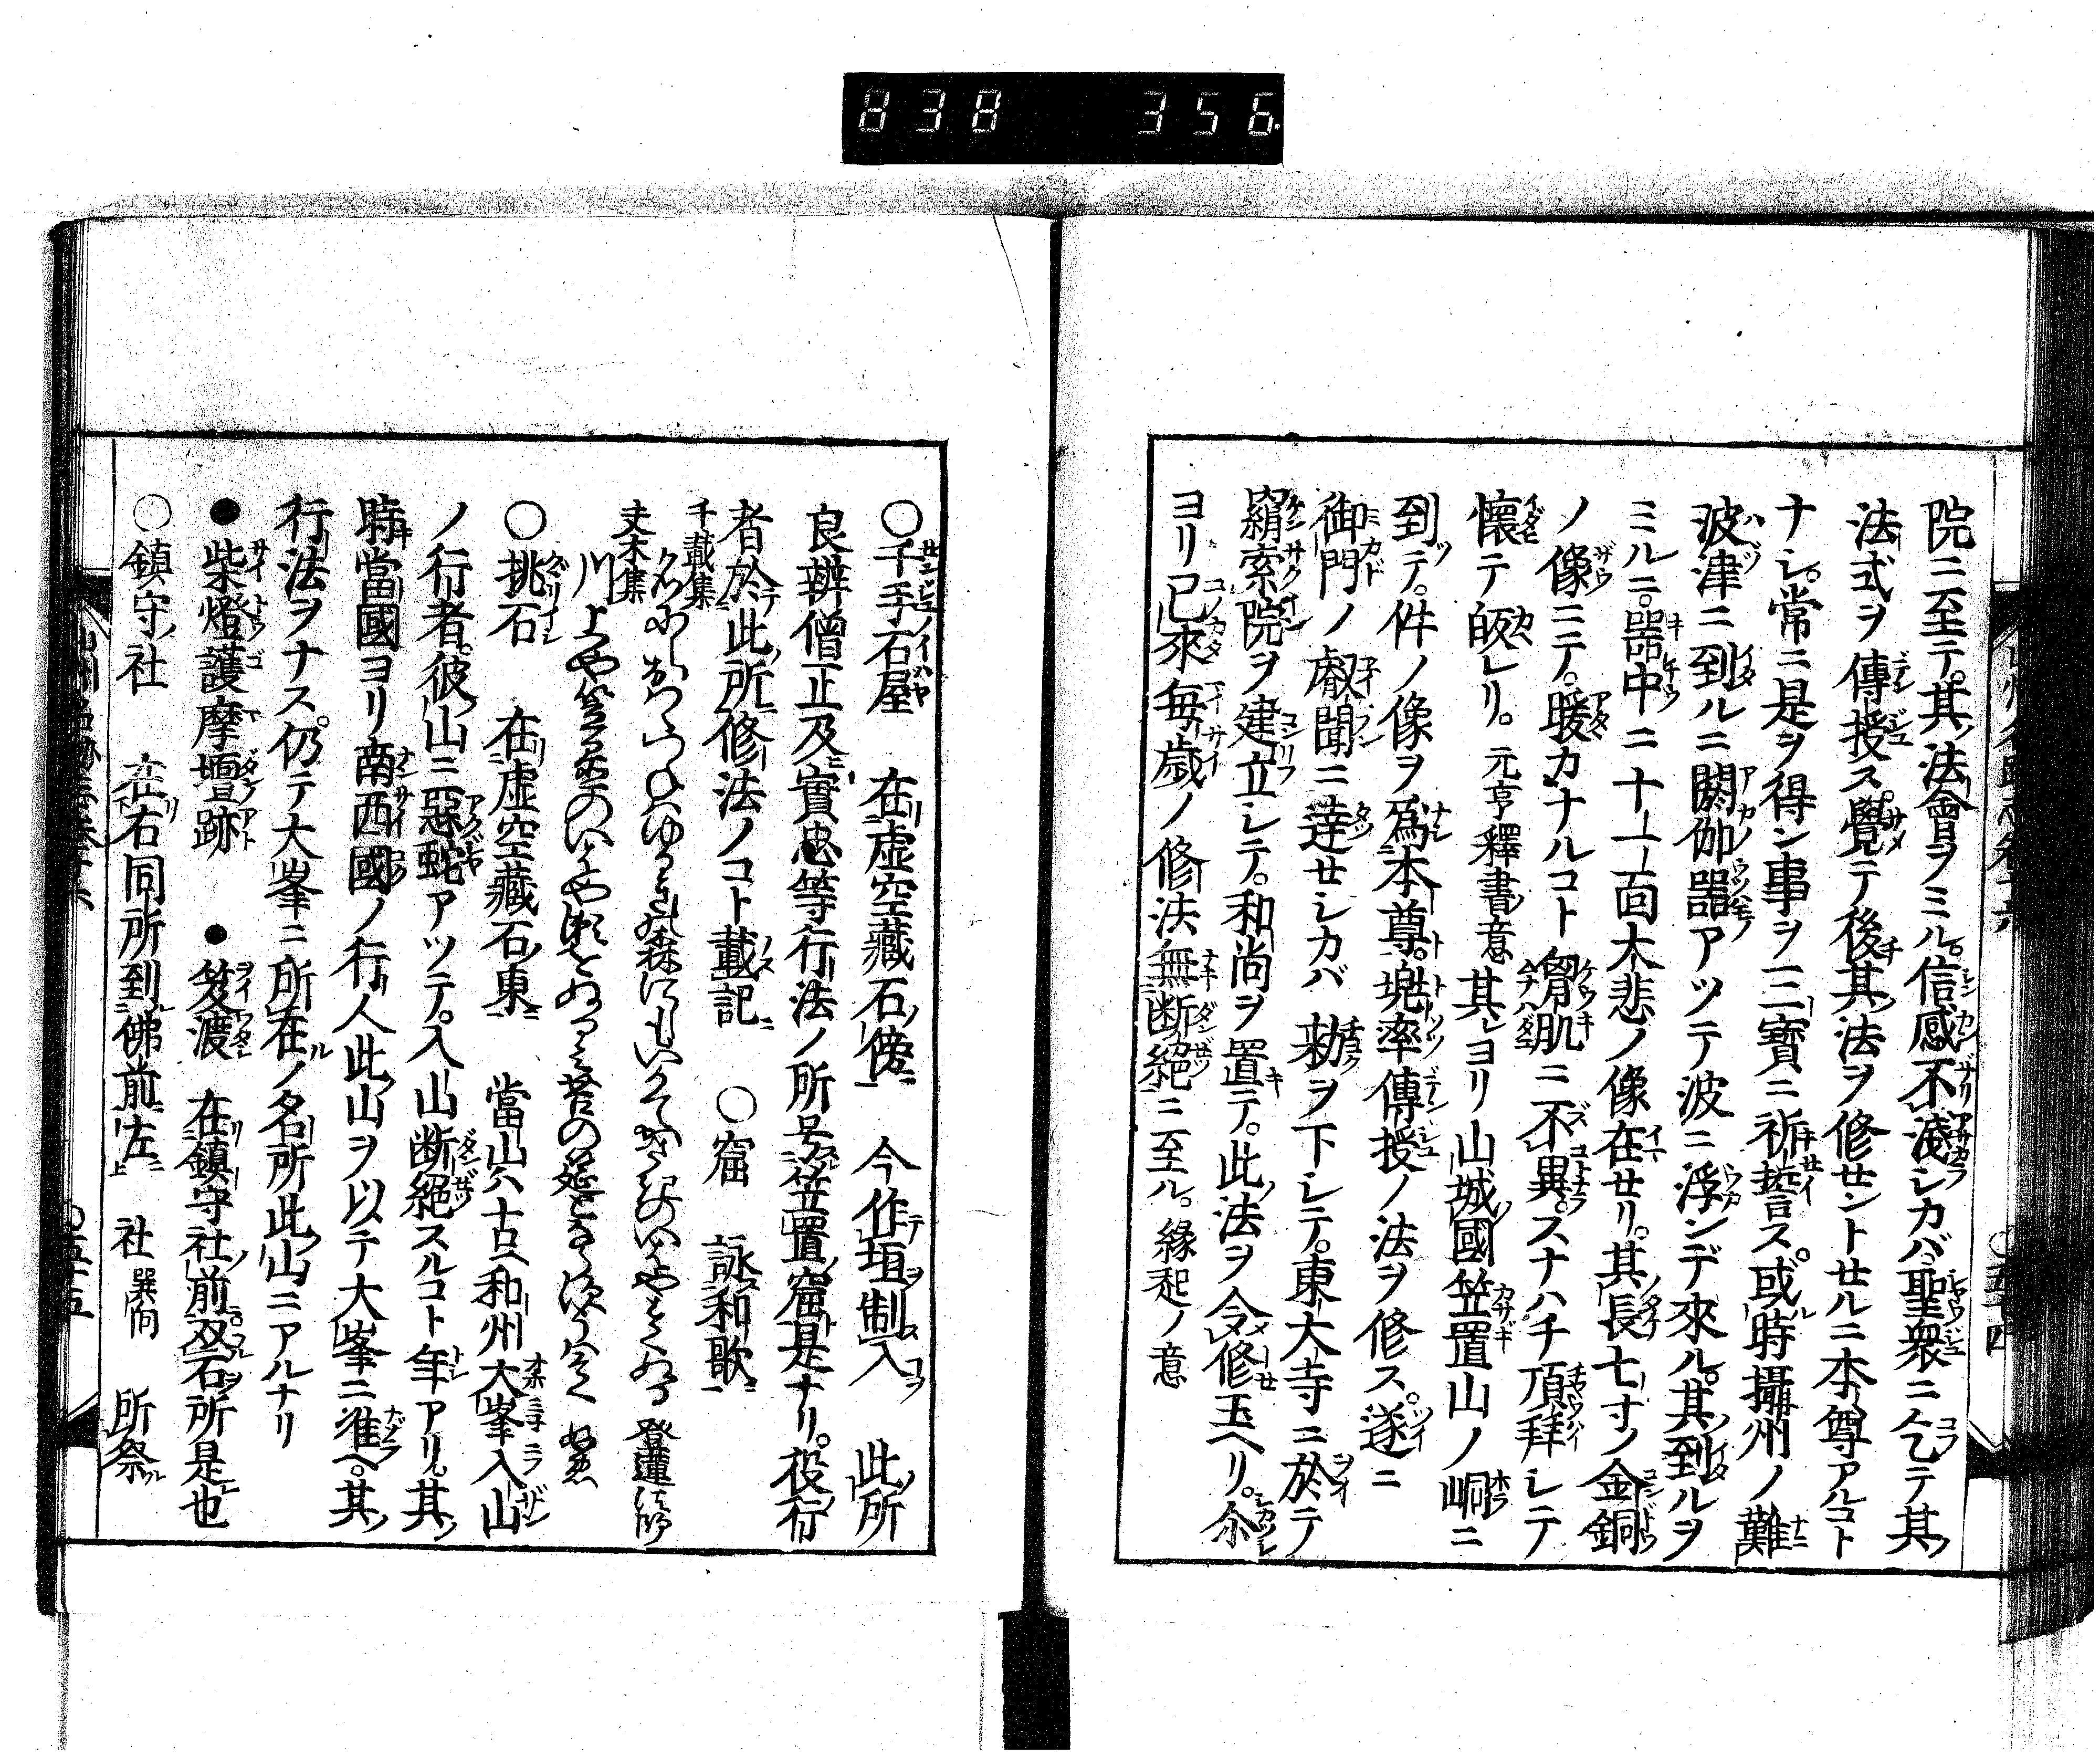 838 356
院ニ至テ。其法會ヲミル。信感不淺シカバ。聖衆ニ乞テ其
法式ヲ傳授ス。覺テ後其法ヲ修セントセルニ本尊アルコト
ナシ。常ニ是ヲ得ン事ヲ三寳ニ祈誓ス。或時攝州ノ難
波津ニ到ルニ閼伽器アツテ波ニ浮ンデ來ル。其到ルヲ
ミルニ。器中ニ十一面大悲ノ像在セリ。其長七寸ノ金銅
ノ像ニテ。暖カナルコト胷肌ニ不異。スナハチ頂拜シテ
懷テ皈レリ。元亨釋書意其ヨリ山城國笠置山ノ峒ニ
到テ。件ノ像ヲ爲本尊。兠率傳授ノ法ヲ修ス。遂ニ
御門ノ叡聞ニ達セシカバ 勅ヲ下シテ。東大寺ニ於テ
羂索院ヲ建立シテ。和尚ヲ置テ。此法ヲ令修玉ヘリ。尒
ヨリ已來毎歳ノ修法無断絕ニ至ル。緣起ノ意
○千手石屋 在虚空藏石傍 今作垣制入 此所
良辨僧正及實忠等行法ノ所号笠置窟是ナリ。役行
者於此所修法ノコト載記 ○窟 詠和歌
千載集
夫木集
登蓮法師
○挑石 在虚空藏石東 當山ハ古ヘ和州大峯入山
ノ行者。彼山ニ惡蛇アツテ。入山断絕スルコト年アリ。其
時當國ヨリ南西國ノ行人此山ヲ以テ大峯ニ准ヘ。其
行法ヲナス。仍テ大峯ニ所在ノ名所此山ニアルナリ
●柴燈護摩壇跡 ●笈渡 在鎮守社前双石所是也
○鎮守社 在右同所到佛前左 社巽向 所祭